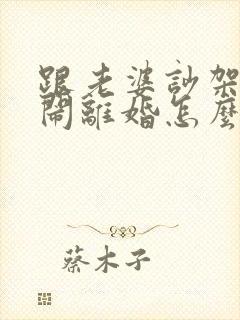 跟老婆訬架
鬧離婚怎麼
蔡木子